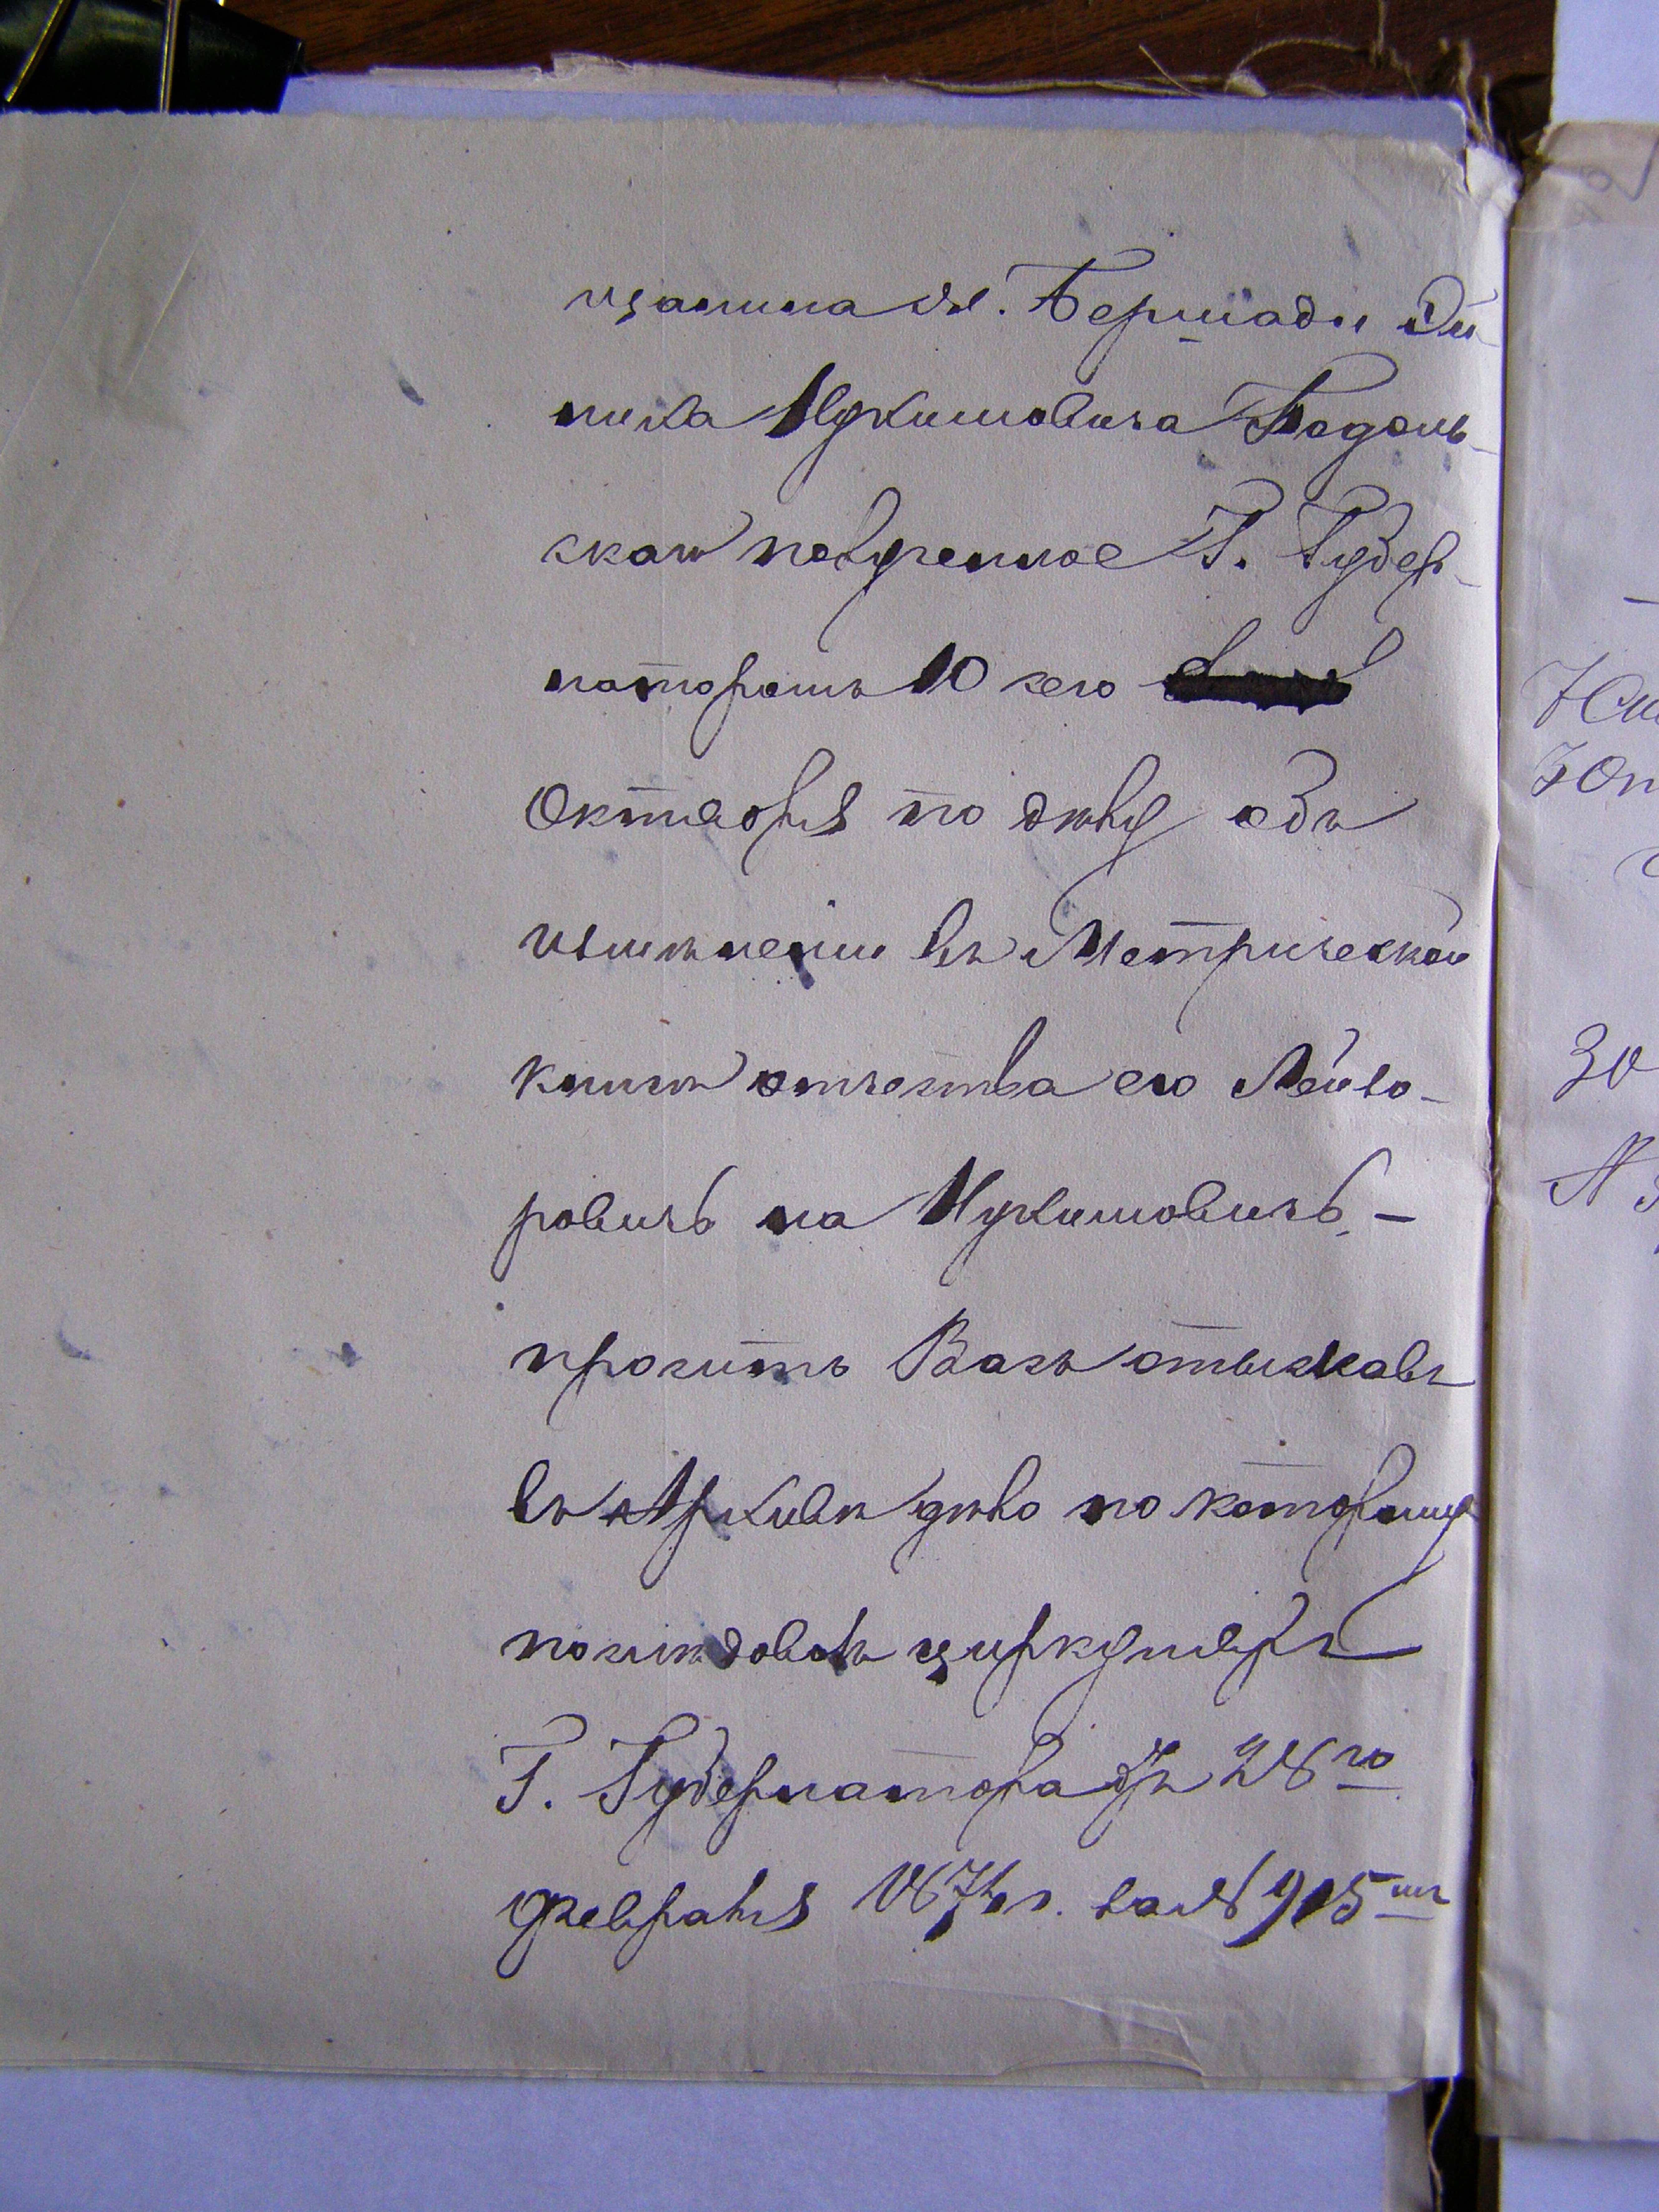 щанина м. Бершади Ой-
Нухимовича Подоль-
скаго поверенное Г. Губер-
наторомъ 10 сего
Октября по делу объ
измѣненіи въ Метрической
книгѣ отчества его Лейзо-
ровичъ на Нухимовичъ. –
проситъ Васъ отыскавъ
въ Архивѣ дѣло по которому
послѣдовалъ циркуляръ
Г. Губернатора отъ 28го
февраля 1874 г. за № 915мъ
30